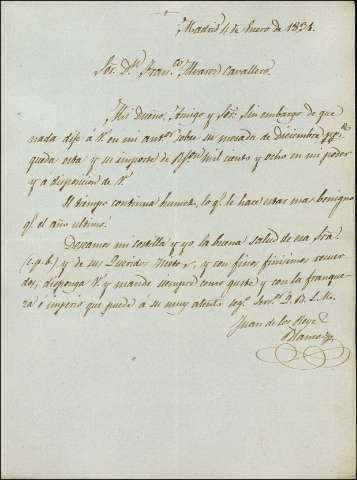 Madrid 4 de Enero de 1834.
Sor. Dn. Franco. Alvaro Cavallero.
Mi Dueño, Amigo y Sor. Sin embargo de que
nada dije á V. en mi antr. sobre su mesada de diciembre
queda esta y su importe de mil ciento y ocho en mi poder
y a disposicion de V.
El tiempo continua humedo, lo q. le hace estar mas benigno
q. el año ultimo.
Deseamos mi costilla y yo la buena salud de esa Sra.
(c.p.b.) y de sus Queridos Nietos, y con finos finisimos recuer-
dos, disponga V. y mande siempre como guste y con la franque-
za é imperio que puede á su muy atento segs. Servr. Q. B. S. M.
Juan de los Reyes
Blanco